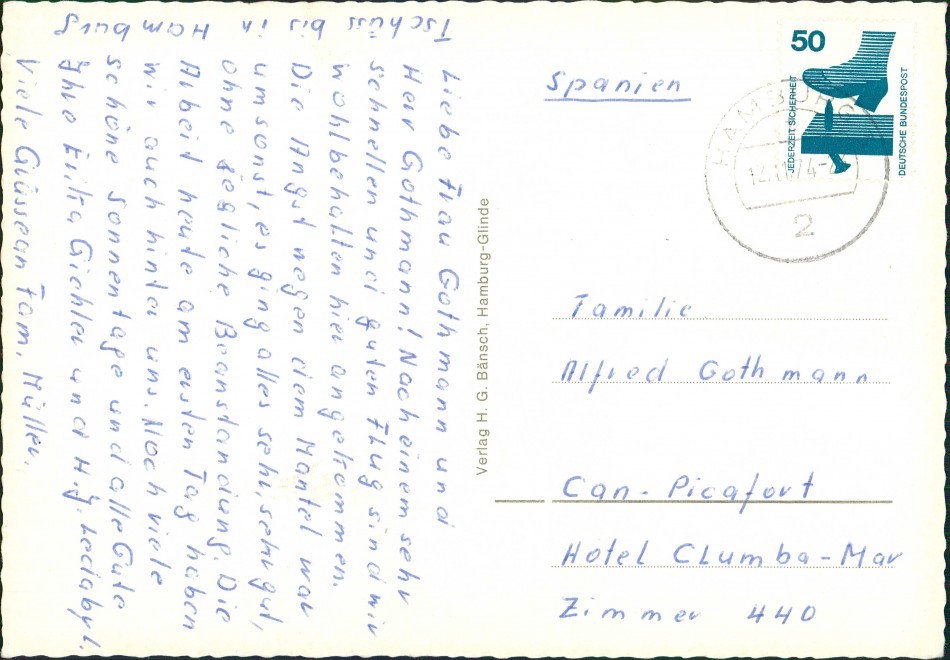 Liebe Frau Gothmann und
Herr Gothmann! Nach einem sehr
schnellen und guten Flug sind wir
wohlbehalten hier angekommen.
Die Angst wegen dem Mantel war
umsonst, es ging alles sehr, sehr gut,
ohne jegliche Beanstandung. Die
Arbeit heute am ersten Tag haben
wir auch hinter uns. Noch viele
schöne Sonnentage und alle Gute
Ihre Erika Giehler und H.J.
Viele Grüsse an Fam. Müller.
Tschüss bis in Hamburg
Verlag H. G. Bänsch, Hamburg-Glinde
Spanien
50
JEDERZEIT SICHERHEIT
DEUTSCHE BUNDESPOST
HAMBURG
12.11.74
2
Familie
Alfred Gothmann
Can-Picafort
Hotel Clumba-Mar
Zimmer 440